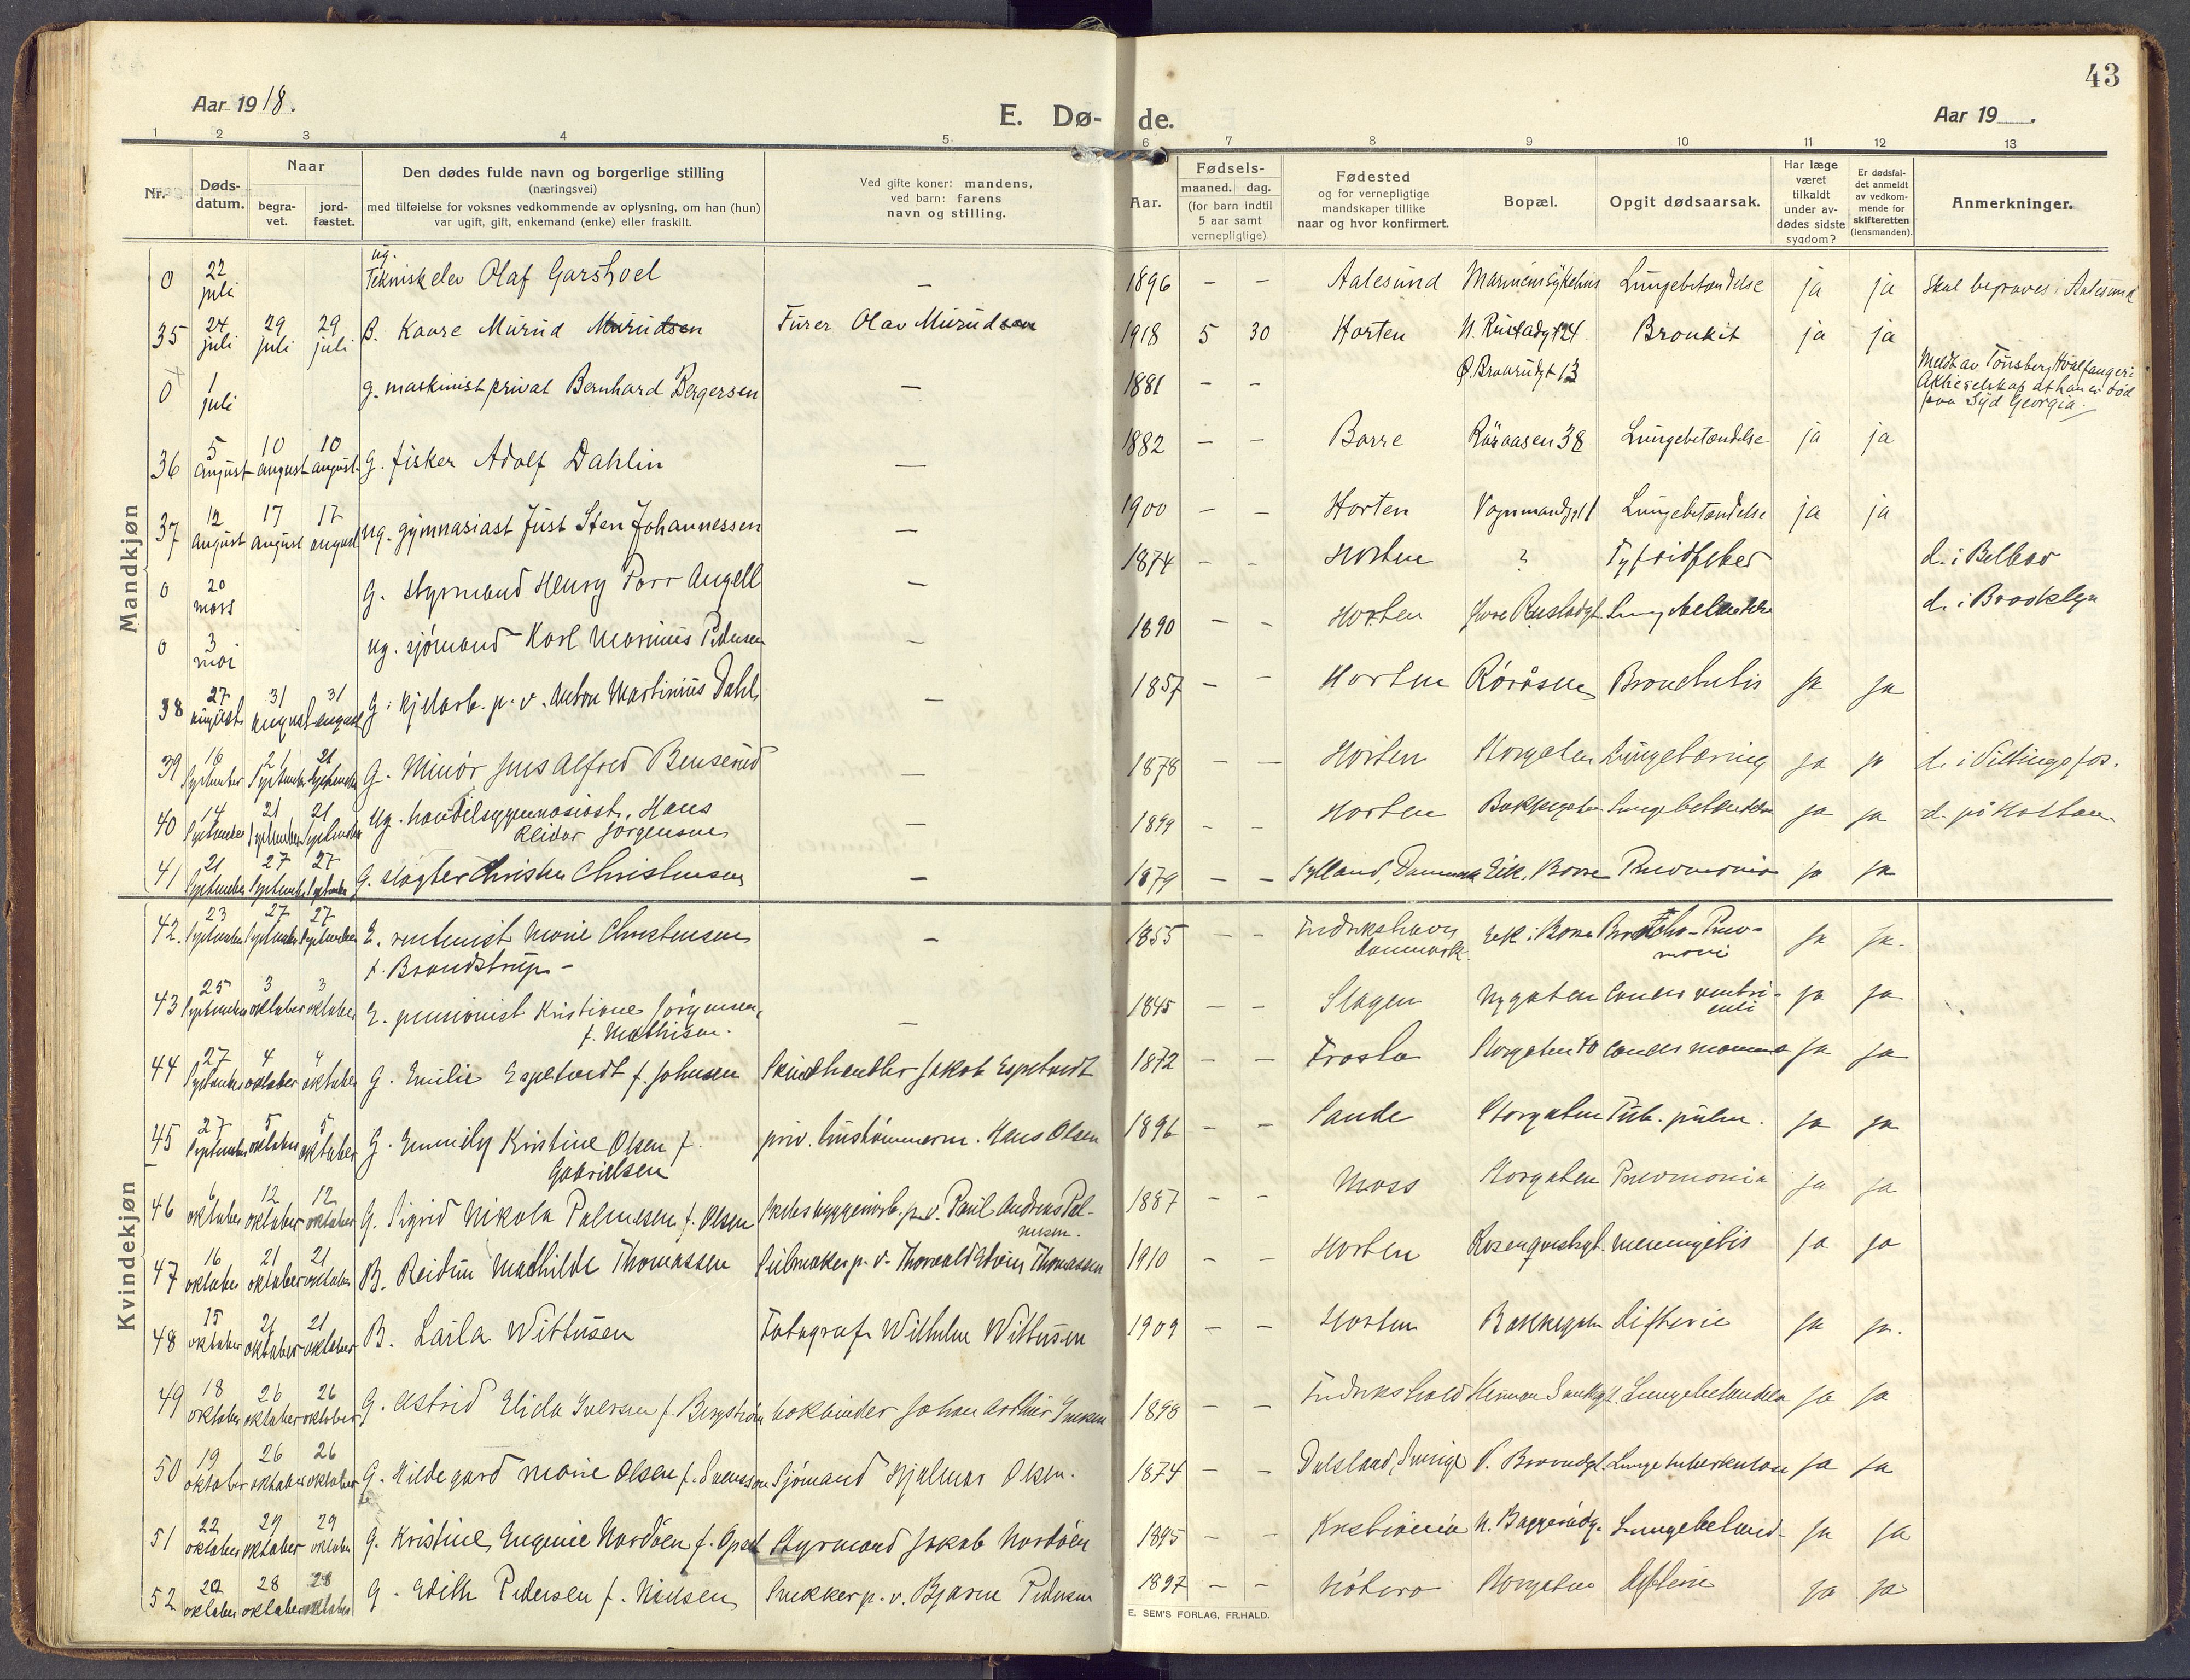 43
Aar 1918.
E. Dø- de.
Aar 19 .
1 2 3 4 5. 6 7 8 9 10 11 12 13
Nr.
Døds-
datum.
Naar
begra-
vet.
jord-
fæstet.
Den dødes fulde navn og borgerlige stilling
(næringsvei)
med tilføielse for voksnes vedkommende av oplysning, om han (hun)
var ugift, gift, enkemand (enke) eller fraskilt.
Ved gifte koner: mandens,
ved barn: farens
navn og stilling.
Aar.
Fødsels-
maaned. dag.
(for barn indtil
5 aar samt
vernepligtige)
Fødested
og for vernepligtige
mandskaper tillike
naar og hvor konfirmert.
Bopæl.
Opgit dødsaarsak.
Har læge
været
tilkaldt
under av-
dødes sidste
sygdom?
Er dødsfal-
det anmeldt
av vedkom-
mende for
skifteretten
(lensmanden).
Anmerkninger.
Mandkjøn
0 22 juli ug. Teknisk elev Olaf Garshoel — 1896 — — Aalesund Marinens sykehus Lungebetændelse ja ja Skal begraves i Aalesund
35 24 juli 29 juli 29 juli B. Kaare Murud Murudsen Furer Olav Murudsen 1918 5 30 Horten N. Rustadgt 24 Bronkit ja ja
0 1 juli g. maskinist privat Bernhard Bergersen — 1881 — — Ø. Braarudgt 13 Meldt av Tønsberg Hvalfangeri
Aktieselskap at han er død
paa Syd Georgia.
36 5 august 10 august 10 august G. fisker Adolf Dahlin — 1882 — — Borre Røraasen 38 Lungebetændelse ja ja
37 12 august 17 august 17 august ug. gymnasiast Just Sten Johannessen — 1900 — — Horten Vognmandsgt 1 Lungebetændelse ja ja
0 20 mars G. styrmand Henry Parr Angell — 1874 — — Horten ? Tyfoidfeber d. i Belbao
0 3 mai ug. sjømand Karl Marinius Pedersen — 1890 — — Horten Rustadgt Lungebetændelse d. i Brooklyn
38 27 august 31 august 31 august G. kjelarb. p. v. Anton Martinius Dahl — 1857 — — Horten Røråsen Bronchitis ja ja
39 16 September 21 September 21 September G. Minør Jens Alfred Benserud — 1878 — — Horten Storgaten Lungetæring ja ja d. i Vittingfos.
40 14 September 21 September 21 September Ug. handelsgymnasiast, Hans
Reidar Jørgensen — 1899 — — Horten Bakkegaten Lungebetændelse ja ja d. på Holtan
41 21 September 27 September 27 September G. slagter Christen Christensen — 1879 — — Jylland, Danmark Eik, Borre Pneumonia ja ja
Kvindekjøn
42. 23 September 27 September 27 September E. rentenist Marie Christensen
f. Brandstrup — 1855 — — Fredrikshavn
Danmark Eik i Borre Broncho-Pneu-
moni ja ja
43 25 September 3 oktober 3 oktober E. pensionist Kristiane Jørgensen,
f. Mathisen. — 1845 — — Slagen Nygaten Cancer ventri-
culi ja ja
44 27 September 4 oktober 4 oktober G. Emilie Espetvedt f. Johnsen Skindhandler Jakob Espetvedt 1872 — — Frosta Storgaten 40 Cancer mammæ ja ja
45 27 September 5 oktober 5 oktober G. Emmily Kristine Olsen f.
Gabrielsen priv. hustømmerm. Hans Olsen 1896 — — Sande Storgaten Tub. pulm. ja ja
46 6 oktober 12 oktober 12 oktober G. Sigrid Nikola Palmesen f. Olsen Skibsbyggerarb. p. v. Paul Andreas Pal-
mesen. 1887 — — Moss Storgaten Pneumonia ja ja
47 16 oktober 21 oktober 21 oktober B. Reidun Mathilde Thomassen Seilmaker p. v. Thorvald Edvin Thomassen 1910 — — Horten Rosenqvistsgt. meningitis ja ja
48 15 oktober 21 oktober 21 oktober B. Laila Wittusen Fotograf Wilhelm Wittusen 1909 — — Horten Bakkegaten Difteri ja ja.
49 18 oktober 26 oktober 26 oktober G. Astrid Elida Iversen f. Bergstrøm bokbinder Johan Arthur Iversen 1898 — — Fredrikshald Herman gt. Lungebetændelse ja ja
50 19 oktober 26 oktober 26 oktober G. Hildegard Marie Olsen f. Svensson Sjømand Hjalmar Olsen. 1874 — — Dalsland, Sverige V. Braarudgt. Lungetuberkulose ja ja
51 22 oktober 29 oktober 29 oktober G. Kristine Eugenie Nordöen f. Styrmand Jakob Nordöen 1895 — — Kristiania N. Baggerudg. Lungebetænd- ja ja
52 22 oktober 28 oktober 28 oktober G. Edith Pedersen f. Nielsen Snekker p. v. Bjarne Pedersen 1897 — — Nøtterø Storgaten Difteri ja ja
E. SEM'S FORLAG, FR.HALD.